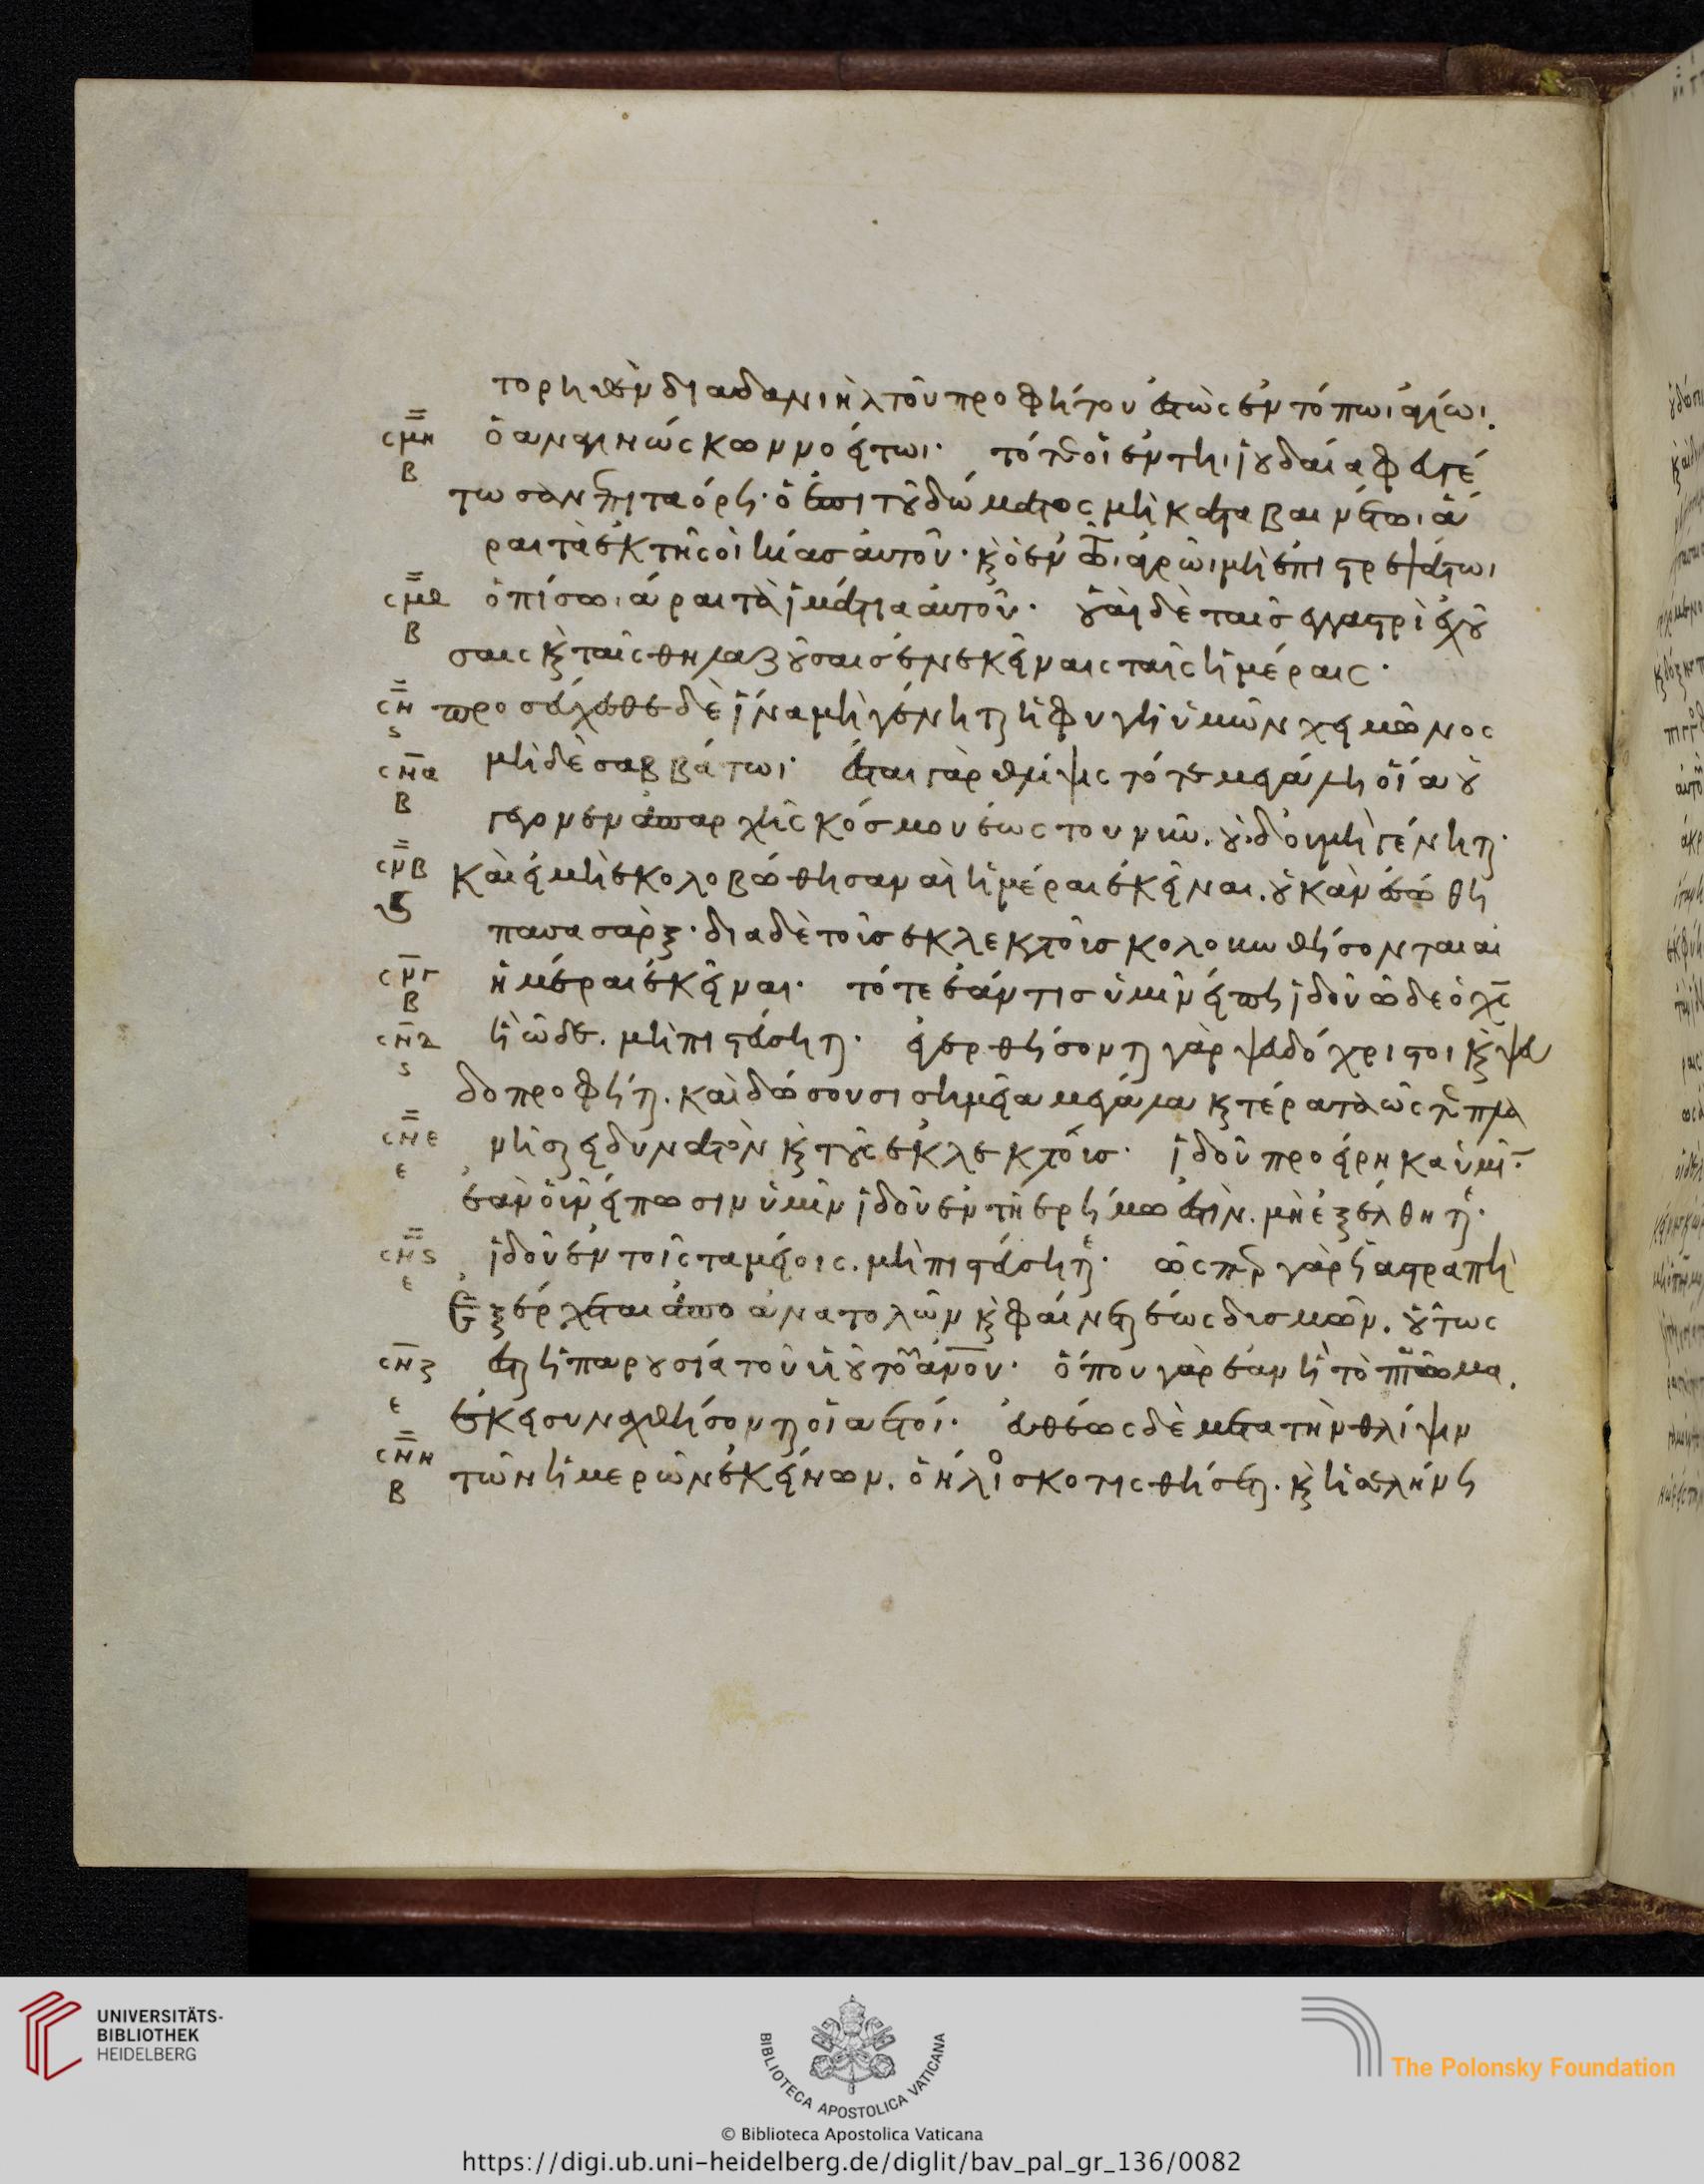 το ρηθὲν διὰ δανιὴλ τοῦ προφήτου ἑστὼς ἐν τόπωι ἁγίωι.
σμη ὁ ἀναγινώσκων νοείτωι· τότε οἱ ἐν τῆι ἰουδαία φευγέ
β
τωσαν ἐπι τα όρη· ὁ ἐπι τοῦ δώματος μὴ καταβαινέτωι ἆ
ραι τὰ ἐκ τῆς οἰκίας αὐτοῦ· κ ὁ ἐν τῶι ἀγρῶι μὴ ἐπιστρεψάτωι
σμθ ὀπίσωι ἆραι τὰ ἱμάτια αὐτοῦ· οὐαὶ δὲ ταῖς ἐν γαστρὶ ἐχού
β
σαις κ ταῖς θηλαζούσαις ἐν ἐκείναις ταῖς ἡμέραις·
σν προσεύχεσθε δὲ ἵνα μὴ γένητ ἡ φυγὴ ὑμῶν χειμῶνος
ς
σνα μὴδὲ σαββάτωι· έσται γὰρ θλίψις τότε μεγάλη οἵα οὐ
β
γέγονεν ἀπαρχῆς κόσμου έως του νῦν. οὐδ οὐ μὴ γένητ·
σνβ καὶ εἰ μὴ ἐκολοβώθησαν αἱ ἡμέραι ἐκεῖναι. οὐκ ἂν ἐσώθη
ς
πασα σὰρξ· δια δὲ τοὺς ἐκλεκτοὺς κολοβωθήσονται αἱ
σνγ ἡμέραι ἐκεῖναι· τότε ἐάν τις ὑμῖν είπη ἰδοὺ ὧδε ὁ χς
β
σνδ ἢ ὧδε. μὴ πιστεύσητ· ἐγερθήσοντ γὰρ ψευδόχριστοι κ ψευ
ς
δοπροφήτ. καὶ δώσουσι σημεῖα μεγάλα κ τέρατα ὥστε πλα
σνε νῆσ ει δυνατὸν κ τοὺς ἐκλεκτούς· ἰδοὺ προείρηκα ὑμῖ
ε
ἐὰν οὖν είπωσιν ὑμῖν ἰδοὺ ἐν τῆ ἐρήμω ἐστὶν. μὴ ἐξέλθητε·
σνς ἰδοὺ ἐν τοῖς ταμείοις. μὴ πιστεύσητε· ὥσπερ γὰρ ἡ ἀστραπὴ
ε
ἐξέρχεται ἀπο ἀνατολῶν κ φαίνετ έως δισμῶν. οὕτως
σνζ έστ ἡ παρουσία τοῦ υἱοῦ τοῦ ἀνου· ὅπου γὰρ ἐὰν ἦ τὸ πτῶμα.
ε
ἐκεῖ συναχθήσοντ οἱ ἀετοί· εὐθέως δὲ μετα τὴν θλίψιν
σνη τῶν ἡμερῶν ἐκείνων. ὁ ήλιο σκοτισθήσετ. κ ἡ σελήνη
β
UNIVERSITÄTS-
BIBLIOTHEK
HEIDELBERG
BIBLIOTECA APOSTOLICA VATICANA
The Polonsky Foundation
© Biblioteca Apostolica Vaticana
https://digi.ub.uni-heidelberg.de/diglit/bav_pal_gr_136/0082